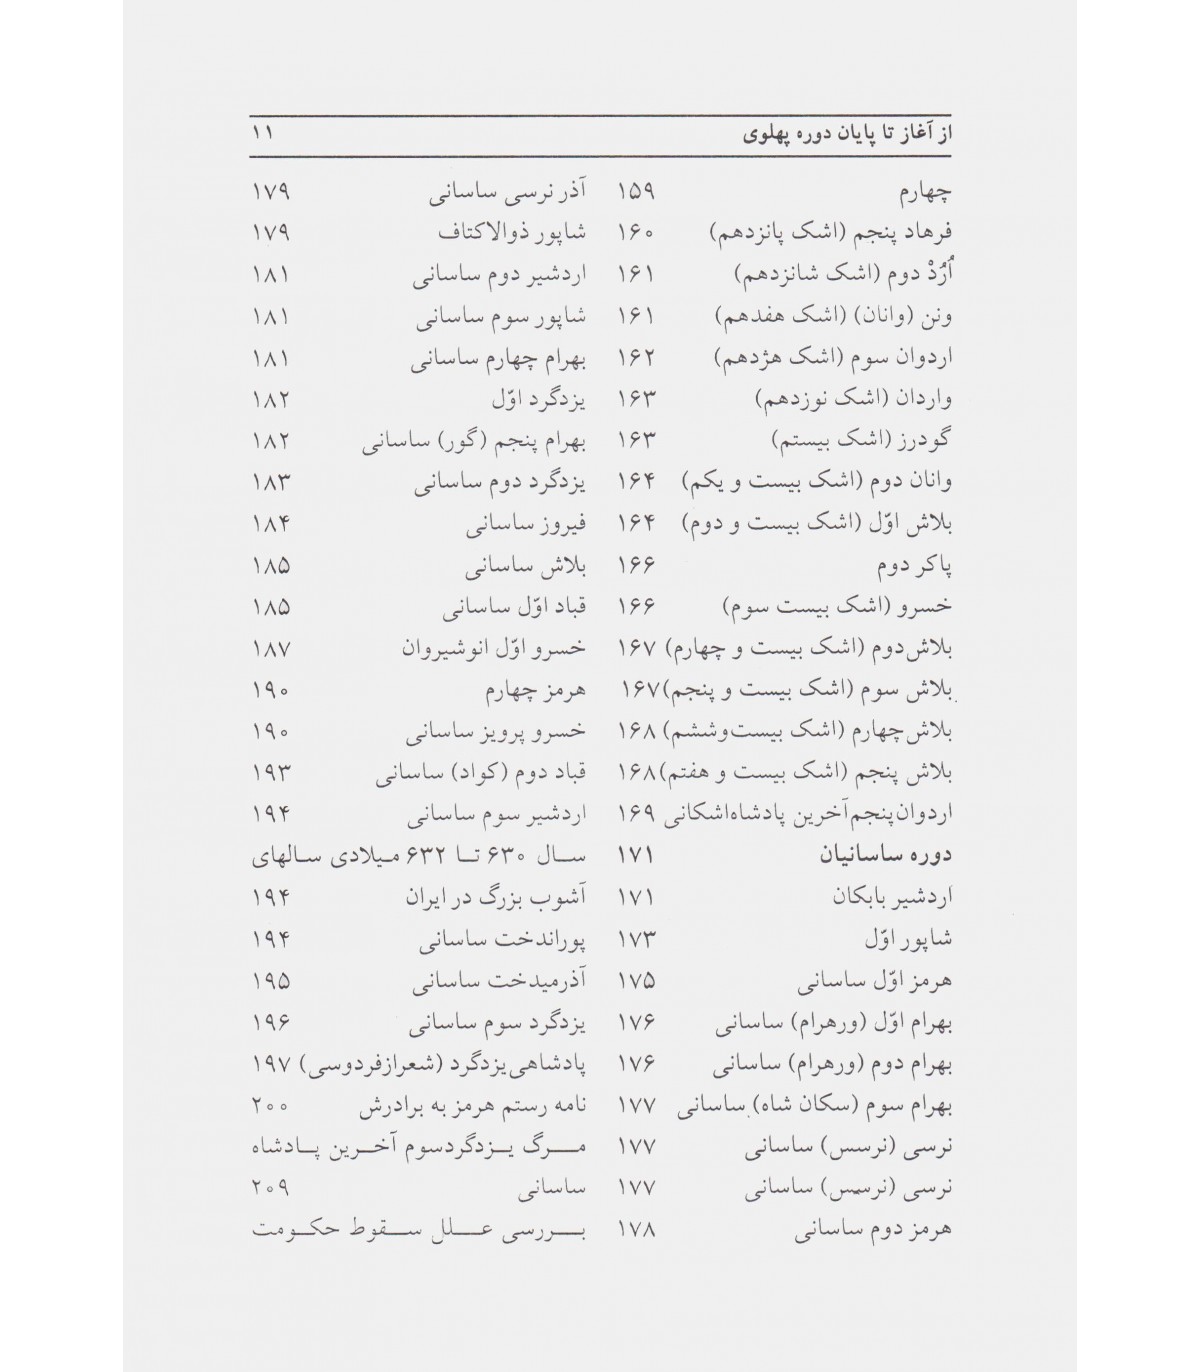 از آغاز تا پایان دوره پهلوی ۱۱
چهارم ۱۵۹
فرهاد پنجم (اشک پانزدهم) ۱۶۰
اُرُدْ دوم (اشک شانزدهم) ۱۶۱
ونن (وانان) (اشک هفدهم) ۱۶۱
اردوان سوم (اشک هژدهم) ۱۶۲
واردان (اشک نوزدهم) ۱۶۳
گودرز (اشک بیستم) ۱۶۳
وانان دوم (اشک بیست و یکم) ۱۶۴
بلاش اوّل (اشک بیست و دوم) ۱۶۴
پاکر دوم ۱۶۶
خسرو (اشک بیست سوم) ۱۶۶
بلاش‌دوم (اشک بیست و چهارم) ۱۶۷
بلاش سوم (اشک بیست و پنجم) ۱۶۷
بلاش‌چهارم (اشک بیست‌وششم) ۱۶۸
بلاش پنجم (اشک بیست و هفتم) ۱۶۸
اردوان‌پنجم‌آخرین پادشاه‌اشکانی ۱۶۹
دوره ساسانیان ۱۷۱
اردشیر بابکان ۱۷۱
شاپور اوّل ۱۷۳
هرمز اوّل ساسانی ۱۷۵
بهرام اوّل (ورهرام) ساسانی ۱۷۶
بهرام دوم (ورهرام) ساسانی ۱۷۶
بهرام سوم (سکان شاه) ساسانی ۱۷۷
نرسی (نرسس) ساسانی ۱۷۷
نرسی (نرسس) ساسانی ۱۷۷
هرمز دوم ساسانی ۱۷۸
آذر نرسی ساسانی ۱۷۹
شاپور ذوالاکتاف ۱۷۹
اردشیر دوم ساسانی ۱۸۱
شاپور سوم ساسانی ۱۸۱
بهرام چهارم ساسانی ۱۸۱
یزدگرد اوّل ۱۸۲
بهرام پنجم (گور) ساسانی ۱۸۲
یزدگرد دوم ساسانی ۱۸۳
فیروز ساسانی ۱۸۴
بلاش ساسانی ۱۸۵
قباد اوّل ساسانی ۱۸۵
خسرو اوّل انوشیروان ۱۸۷
هرمز چهارم ۱۹۰
خسرو پرویز ساسانی ۱۹۰
قباد دوم (کواد) ساسانی ۱۹۳
اردشیر سوم ساسانی ۱۹۴
سال ۶۳۰ تا ۶۳۲ میلادی سالهای
آشوب بزرگ در ایران ۱۹۴
پوراندخت ساسانی ۱۹۴
آذرمیدخت ساسانی ۱۹۵
یزدگرد سوم ساسانی ۱۹۶
پادشاهی‌یزدگرد (شعرازفردوسی) ۱۹۷
نامه رستم هرمز به برادرش ۲۰۰
مرگ یزدگردسوم آخرین پادشاه
ساسانی ۲۰۹
بررسی علل سقوط حکومت